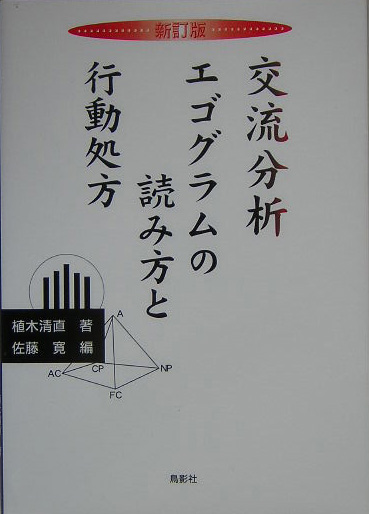 新訂版
交流分析
エゴグラムの
読み方と
行動処方
植木清直 著
佐藤 寛 編
A
AC
CP
NP
FC
鳥影社